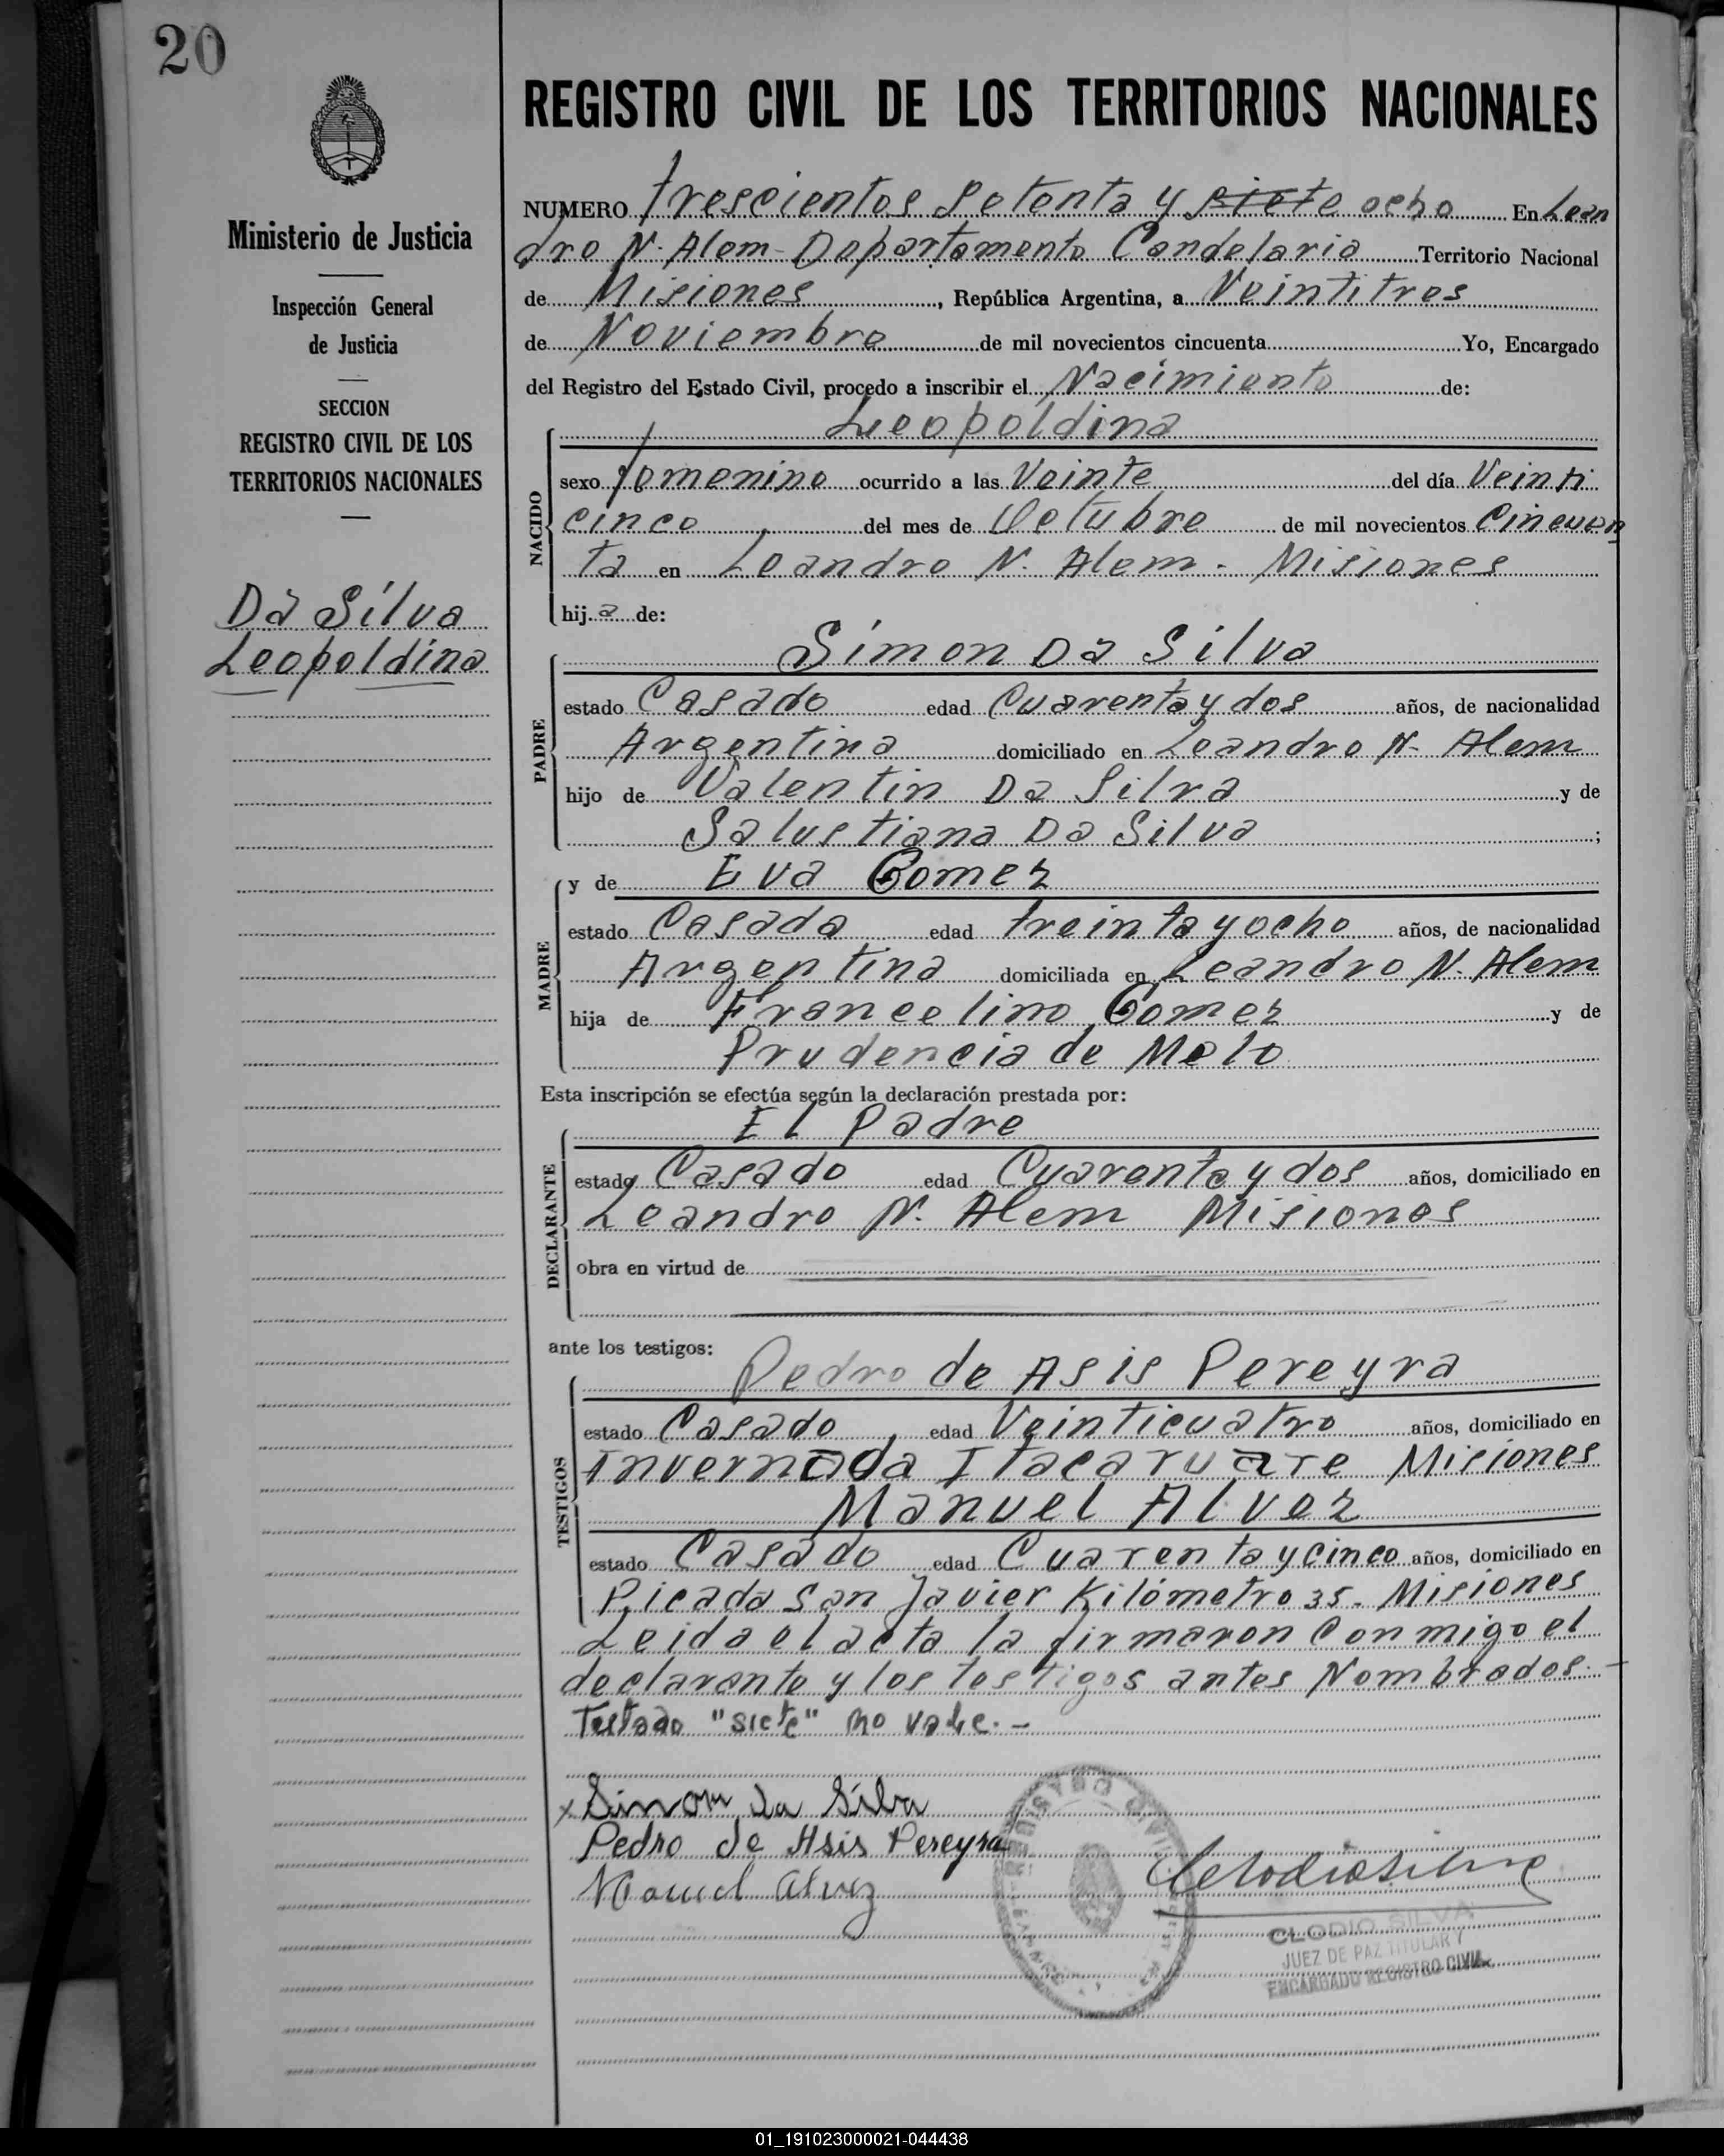 20
Ministerio de Justicia
Inspección General
de Justicia
SECCION
REGISTRO CIVIL DE LOS
TERRITORIOS NACIONALES
Da Silva
Leopoldina
REGISTRO CIVIL DE LOS TERRITORIOS NACIONALES
NUMERO trescientos setenta y ~~siete~~ ocho En Lean
dro N. Alem - Departamento Candelaria Territorio Nacional
de Misiones, República Argentina, a Veintitres
de Noviembre de mil novecientos cincuenta Yo, Encargado
del Registro del Estado Civil, procedo a inscribir el Nacimiento de:
Leopoldina
NACIDO
sexo femenino ocurrido a las Veinte del día Veinti
cinco del mes de Octubre de mil novecientos Cincuen
ta en Leandro N. Alem - Misiones
hija de:
Simon Da Silva
PADRE
estado Casado edad Cuarenta y dos años, de nacionalidad
Argentina domiciliado en Leandro N. Alem
hijo de Valentin Da Silva y de
Salustiana Da Silva;
y de Eva Gomez
MADRE
estado Casada edad treinta y ocho años, de nacionalidad
Argentina domiciliada en Leandro N. Alem
hija de Francelino Gomez y de
Prudencia de Melo
Esta inscripción se efectúa según la declaración prestada por:
El Padre
DECLARANTE
estado Casado edad Cuarenta y dos años, domiciliado en
Leandro N. Alem Misiones
obra en virtud de
ante los testigos:
Pedro de Asis Pereyra
TESTIGOS
estado Casado edad Veinticuatro años, domiciliado en
Invernada Itacaruare Misiones
Manuel Alvez
estado Casado edad Cuarenta y cinco años, domiciliado en
Picada San Javier Kilómetro 35. Misiones
Leida el acta la firmaron Conmigo el
declarante y los testigos antes Nombrados. -
Testado "siete" no vale. -
x Simon da Silva
Pedro de Asis Pereyra
Manuel Alvez
Clodio Silva
CLODIO SILVA
JUEZ DE PAZ TITULAR Y
ENCARGADO REGISTRO CIVIL
01_191023000021-044438